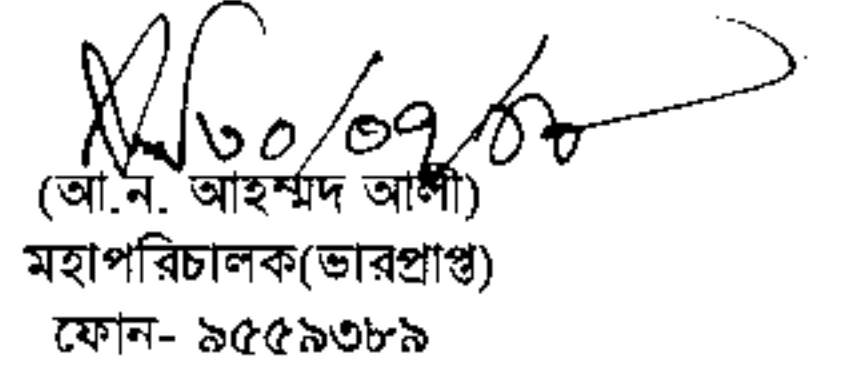 ৩০/০৭/১০
(আ.ন. আহম্মদ আলী)
মহাপরিচালক(ভারপ্রাপ্ত)
ফোন- ৯৫৫৯৩৮৯